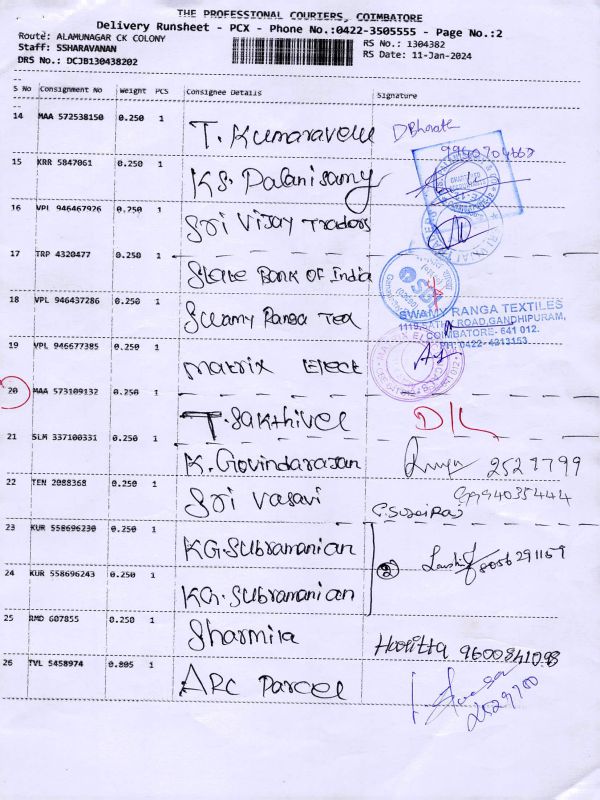 THE PROFESSIONAL COURIERS, COIMBATORE
Delivery Runsheet - PCX - Phone No.:0422-3505555 - Page No.:2
Route: ALAMUNAGAR CK COLONY
RS No.: 1304382
Staff: SSHARAVANAN
RS Date: 11-Jan-2024
DRS No.: DCJB130438202
S No Consignment No Weight PCS Consignee Details Signature
14 MAA 572538150 0.250 1 T. Kumaravelu DBharath
9940704668
15 KRR 5847061 0.250 1 KS. Palanisamy
16 VPL 946467926 0.250 1 Sri Vijay Traders
17 TRP 4320477 0.250 1 State Bank of India
18 VPL 946437286 0.250 1 Swamy Ranga Tex
SWAMY RANGA TEXTILES
1119, SATHY ROAD, GANDHIPURAM,
COIMBATORE- 641 012.
PH:0422- 4313153
19 VPL 946677385 0.250 1 Matrix Elect
20 MAA 573109132 0.250 1 T. Sakthivel D/L
21 SLM 337100331 0.250 1 K. Govindarasan 2529799
22 TEN 2088368 0.250 1 Sri Vasavi
23 KUR 558696230 0.250 1 KG. Subramanian
2 8056291159
24 KUR 558696243 0.250 1 KG. Subramanian
25 RMD 607855 0.250 1 Sharmila 9600841098
26 TVL 5458974 0.805 1 ARC Parcel